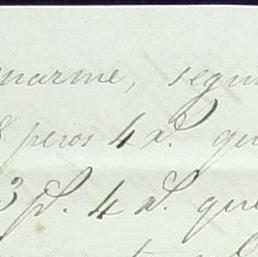 marme, segun
8 pesos 4 r.s que
3 p.s 4 r.s que